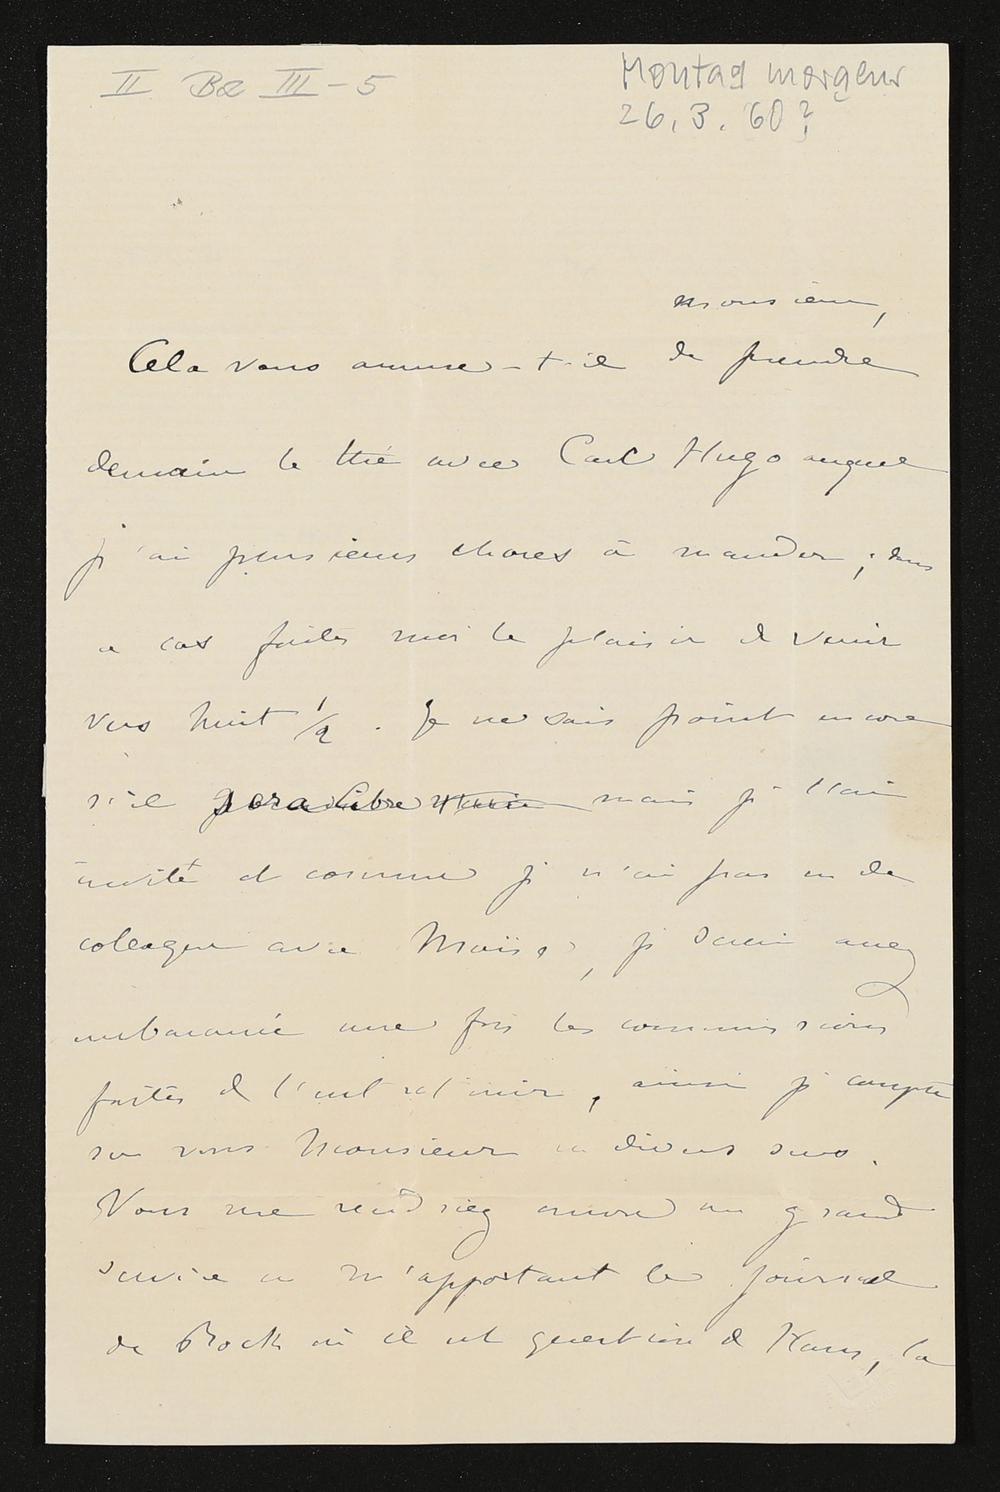 II Be III - 5
Montag morgens
26. 3. 60?
monsieur,
Cela vous amuse-t-il de prendre
demain le thé avec Carl Hugo auquel
j'ai plusieurs choses à mander ; dans
ce cas faites moi le plaisir de venir
vers huit 1/2. Je ne sais point encore
s'il sera libre mais je l'ai
invité et comme je n'ai pas eu de
collègue avec Moïse, je serai assez
embarassée une fois les commissions
faites de l'entretenir, ainsi je compte
sur vous Monsieur en divers sens.
Vous me rendriez encore un grand
service en m'apportant le journal
de Bock où il est question de Hans, la